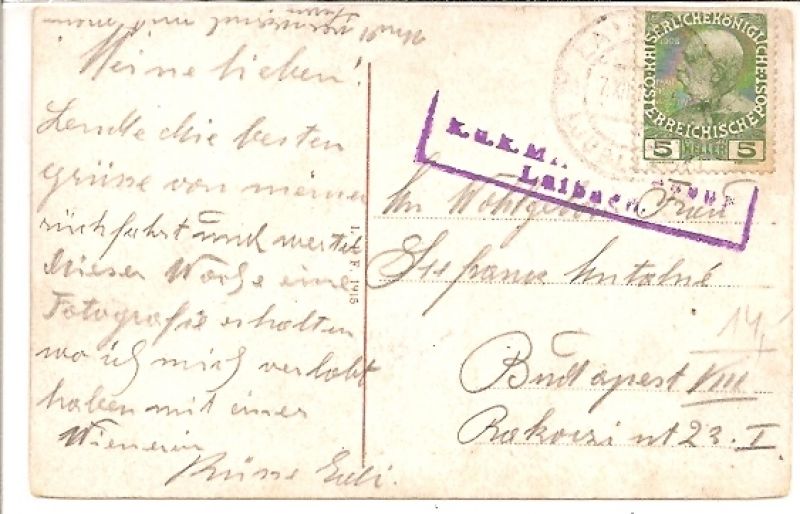 Meine lieben!
Sende die besten
grüsse von meiner
rückfahrt und wertet
dieser Woche eine
Fotografie erhalten
wo ich mich verlobt
haben mit einer
Wienerin
Küsse
I. F. 1915
K.u.K.
Laibach
KAISERLICHE KÖNIGLICHE
ÖSTERREICHISCHE POST
1908
5 HELLER 5
An Wohlgeb. Frau
Antalné
Budapest VIII
Rakoczi ut 23. I.
14,